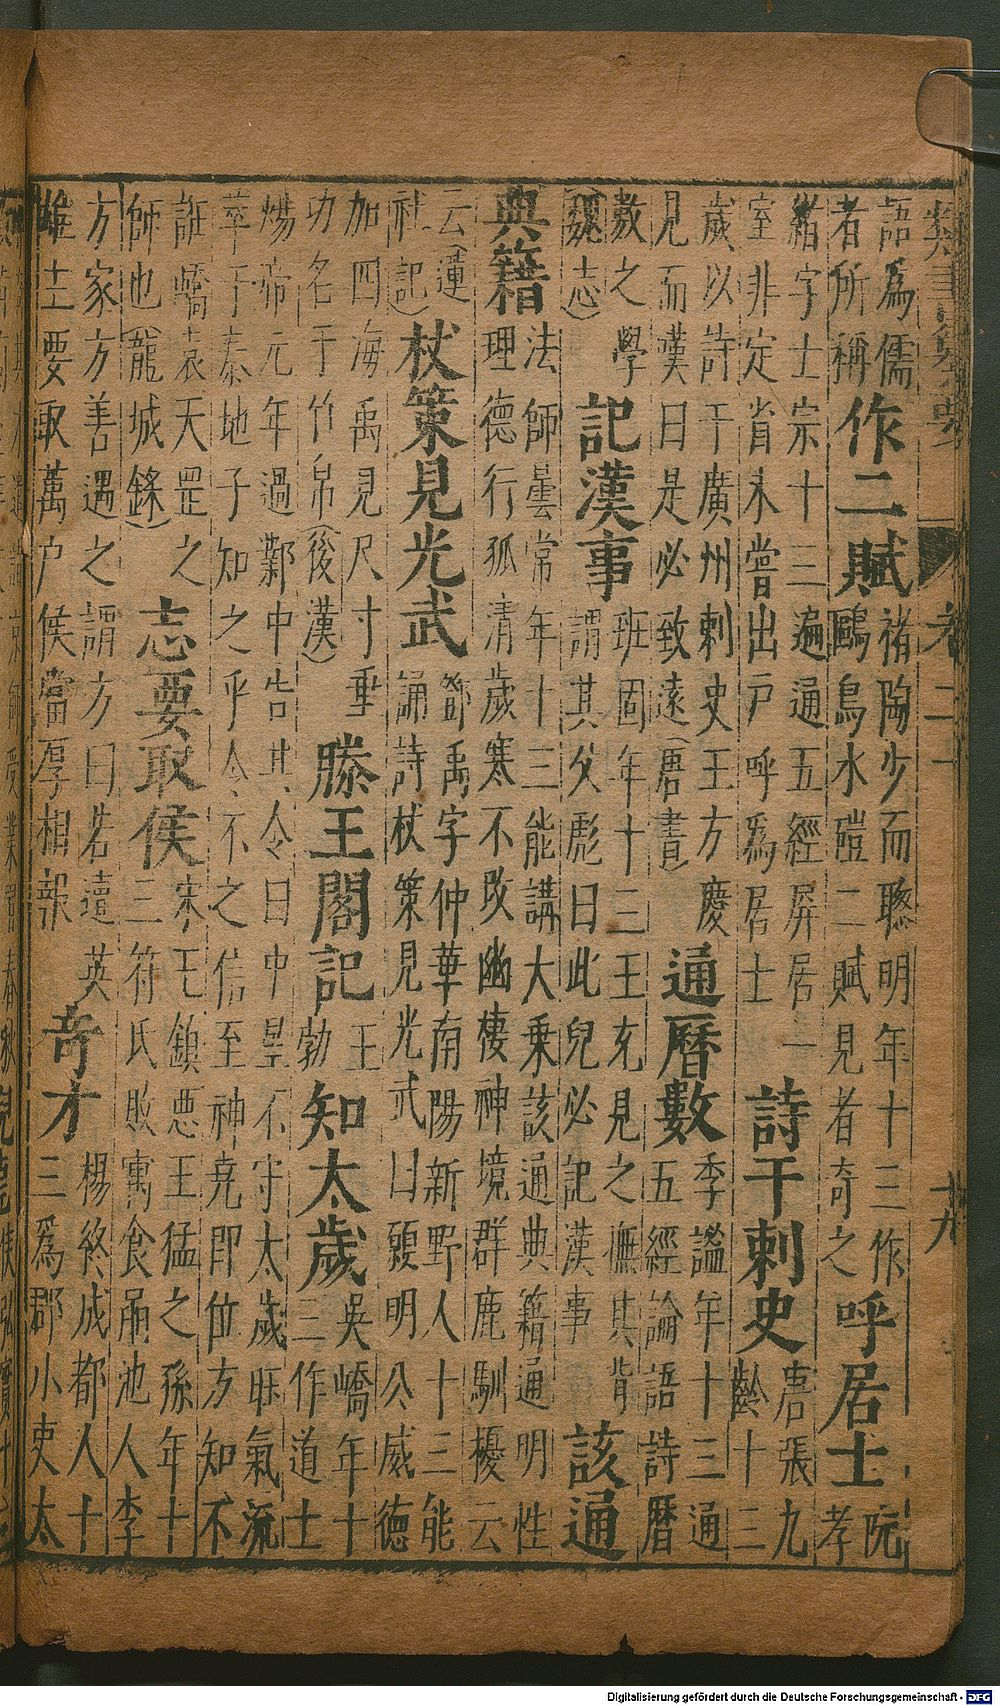 卷二
十九
語為儒
者所稱
作二賦
禇陶少而聰明年十三作
鷗鳥水磑二賦見者奇之
呼居士
阮
孝
緒字士宗十三遍通五經屏居一
室非定省未嘗出戸呼為居士
詩干刺史
唐張九
齡十三
歲以詩干廣州刺史王方慶
見而漢曰是必致遠(唐書)
通曆數
季謐年十三通
五經論語詩曆
數之學
(魏志)
記漢事
班固年十三王充見之憮其背
謂其父彪曰此兒必記漢事
該通
典籍
法師曇常年十三能講大乘該通典籍通明性
理德行孤清歲寒不改幽棲神境群鹿馴擾云
云(蓮
社記)
杖策見光武
鄧禹字仲華南陽新野人十三能
誦詩杖策見光武曰願明公威德
加四海禹見尺寸垂
功名于竹帛(後漢)
滕王閣記
王
勃
知太歲
吳嶠年十
三作道士
煬帝元年過鄴中告其令曰中星不守太歲旺氣流
萃于秦地子知之乎令不之信至神堯即位方知不
誑嶠袁天罡之
師也(龍城錄)
志要取侯
宋王鎮惡王猛之孫年十
三符氏敗寓食黽池人李
方家方善遇之謂方曰若遭英
雄主要取萬户侯當厚相報
奇才
楊終成都人十
三為郡小吏太
Digitalisierung gefördert durch die Deutsche Forschungsgemeinschaft - DFG